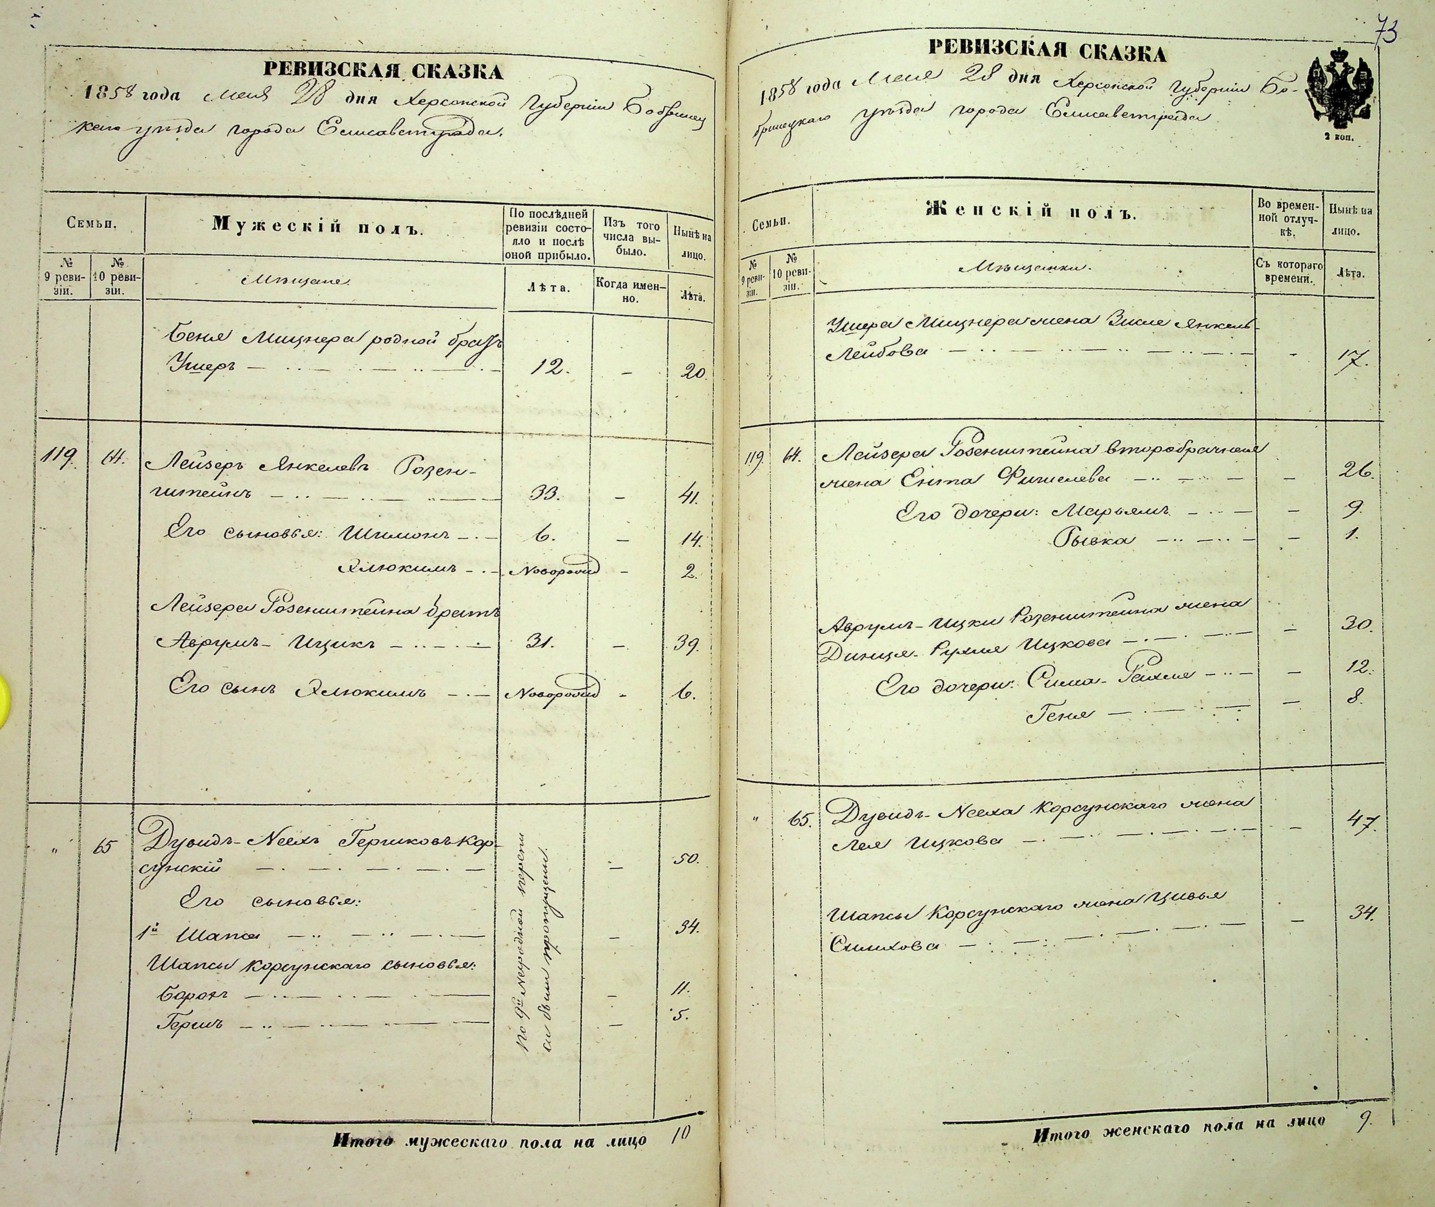 73
РЕВИЗСКАЯ СКАЗКА
1858 года Мая 28 дня Херсонской Губерніи Бобринец
каго уѣзда города Елисаветграда.
Семьи.
Мужескій полъ.
По послѣдней ревизіи состояло и послѣ оной прибыло.
Изъ того числа выбыло.
Нынѣ на лицо.
№ 9 ревизіи.
№ 10 ревизіи.
Мѣщане
Лѣта.
Когда именно.
Лѣта.
Беня Мицнера родной братъ
Ушеръ 12. 20.
119. 64. Лейзеръ Янкелевъ Розен-
штейнъ 33. 41.
Его сыновья: Шимонъ 6. 14.
Элюкимъ Новорожд 2.
Лейзера Розенштейна братъ
Аврумъ-Ицикъ 31. 39.
Его сынъ Элюкимъ Новорожд 6.
" 65 Дувидъ-Ноехъ Гершковъ Кор-
сунскій 50.
Его сыновья:
1й Шапса 34.
Шапсы Корсунскаго сыновья:
Борохъ 11.
Гершъ 5.
По 9й Народной переписи были пропущены.
Итого мужескаго пола на лицо 10
РЕВИЗСКАЯ СКАЗКА
1858 года Мая 28 дня Херсонской Губерніи Бо-
бринецкаго уѣзда города Елисаветграда
2 коп.
Семьи.
Женскій полъ.
Во временной отлучкѣ.
Нынѣ на лицо.
№ 9 ревизіи.
№ 10 ревизіи.
Мѣщанки.
Съ котораго времени.
Лѣта.
Ушера Мицнера жена Зисле Янкель-
Лейбова 17.
119. 64. Лейзера Розенштейна второбрачная
жена Ента Фишелева 26.
Его дочери: Марьямъ 9.
Рывка 1.
Аврумъ-Ицки Розенштейна жена
Динця-Рухля Ицкова 30.
Его дочери: Сима-Рахля 12.
Геня 8.
" 65. Дувидъ-Ноеха Корсунскаго жена
Лея Ицкова 47.
Шапсы Корсунскаго жена Цивья
Симхова 34.
Итого женскаго пола на лицо 9.